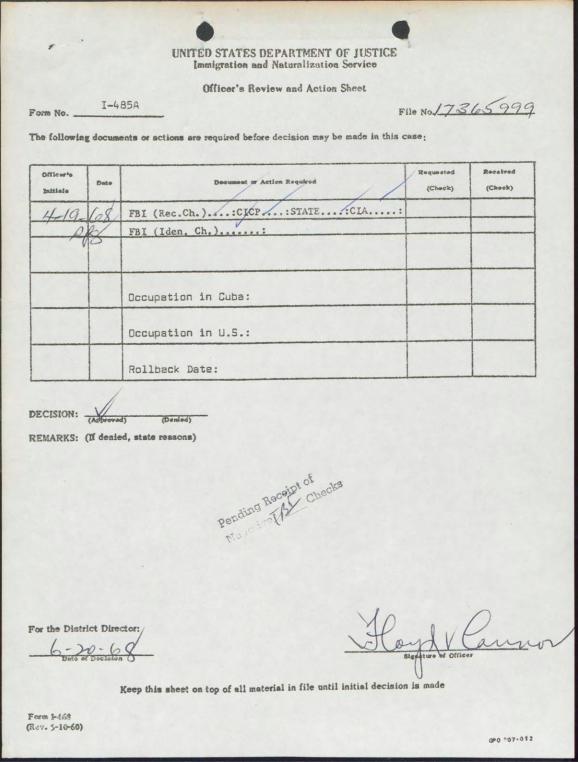 UNITED STATES DEPARTMENT OF JUSTICE
Immigration and Naturalization Service
Officer's Review and Action Sheet
Form No. I-485A
File No. 17365999
The following documents or actions are required before decision may be made in this case:
Officer's Initials Date Document or Action Required Requested (Check) Received (Check)
4-19-68 FBI (Rec.Ch.)....:CICP....:STATE....:CIA.....:
FBI (Iden. Ch.).......:
Occupation in Cuba:
Occupation in U.S.:
Rollback Date:
DECISION: (Approved) (Denied)
REMARKS: (If denied, state reasons)
Pending Receipt of
FBI Checks
For the District Director:
6-20-68
Date of Decision
Floyd V Cannon
Signature of Officer
Keep this sheet on top of all material in file until initial decision is made
Form I-468
(Rev. 5-10-60)
GPO 907-012